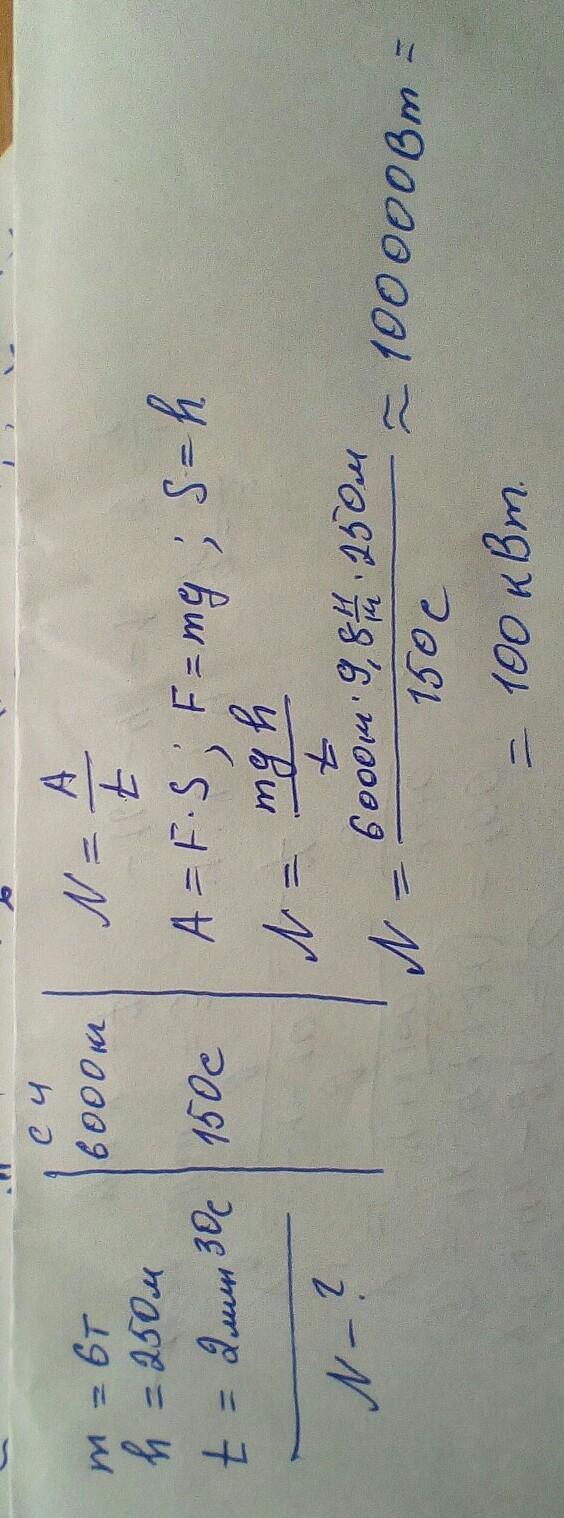 m = 6т
h = 250м
t = 2мин 30с
N – ?
СИ
6000кг
150с
N = A/t
A = F·S; F = mg; S = h
N = mgh/t
N = 6000кг·9,8 Н/кг·250м/150с ≈ 100000Вт =
= 100кВт.